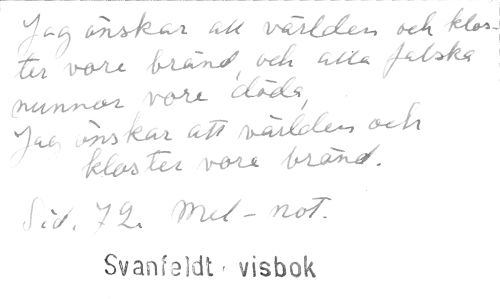 Jag önskar att världen och klos-
ter vore bränd, och alla falska
nunnor vore döda,
Jag önskar att världen och
kloster vore bränd.
Sid. 72. Mel-not.
Svanfeldt, visbok